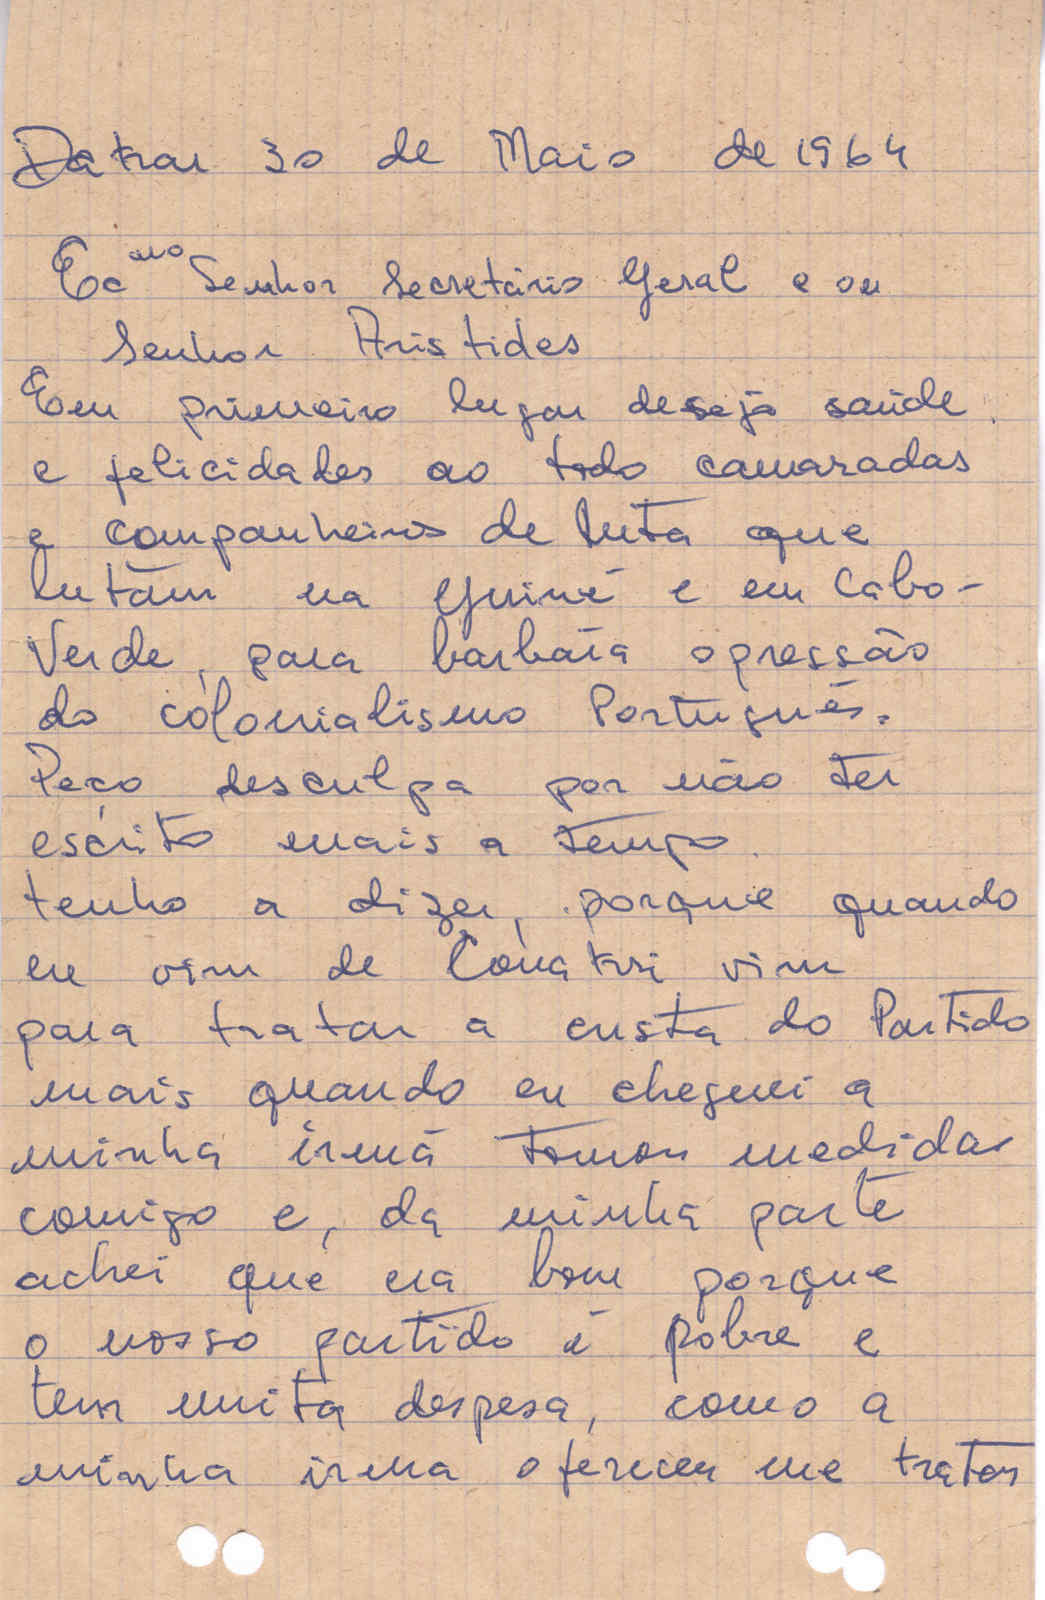 Dakar 30 de Maio de 1964
Ec mo Senhor Secretário Geral e ou
Senhor Aristides
Em primeiro lugar desejo saúde
e felicidades ao todo camaradas
e companheiros de luta que
lutam na Guiné e em Cabo-
Verde, para barbára opressão
do colonialismo Português.
Peço desculpa por não ter
escrito mais a tempo.
tenho a dizer, porque quando
eu vim de Conakri vim
para tratar a custa do Partido
mais quando eu cheguei a
minha irmã tomou medidas
comigo e, da minha parte
achei que era bom porque
o nosso partido é pobre e
tem muita despesa, como a
minha irma ofereceu me tratar